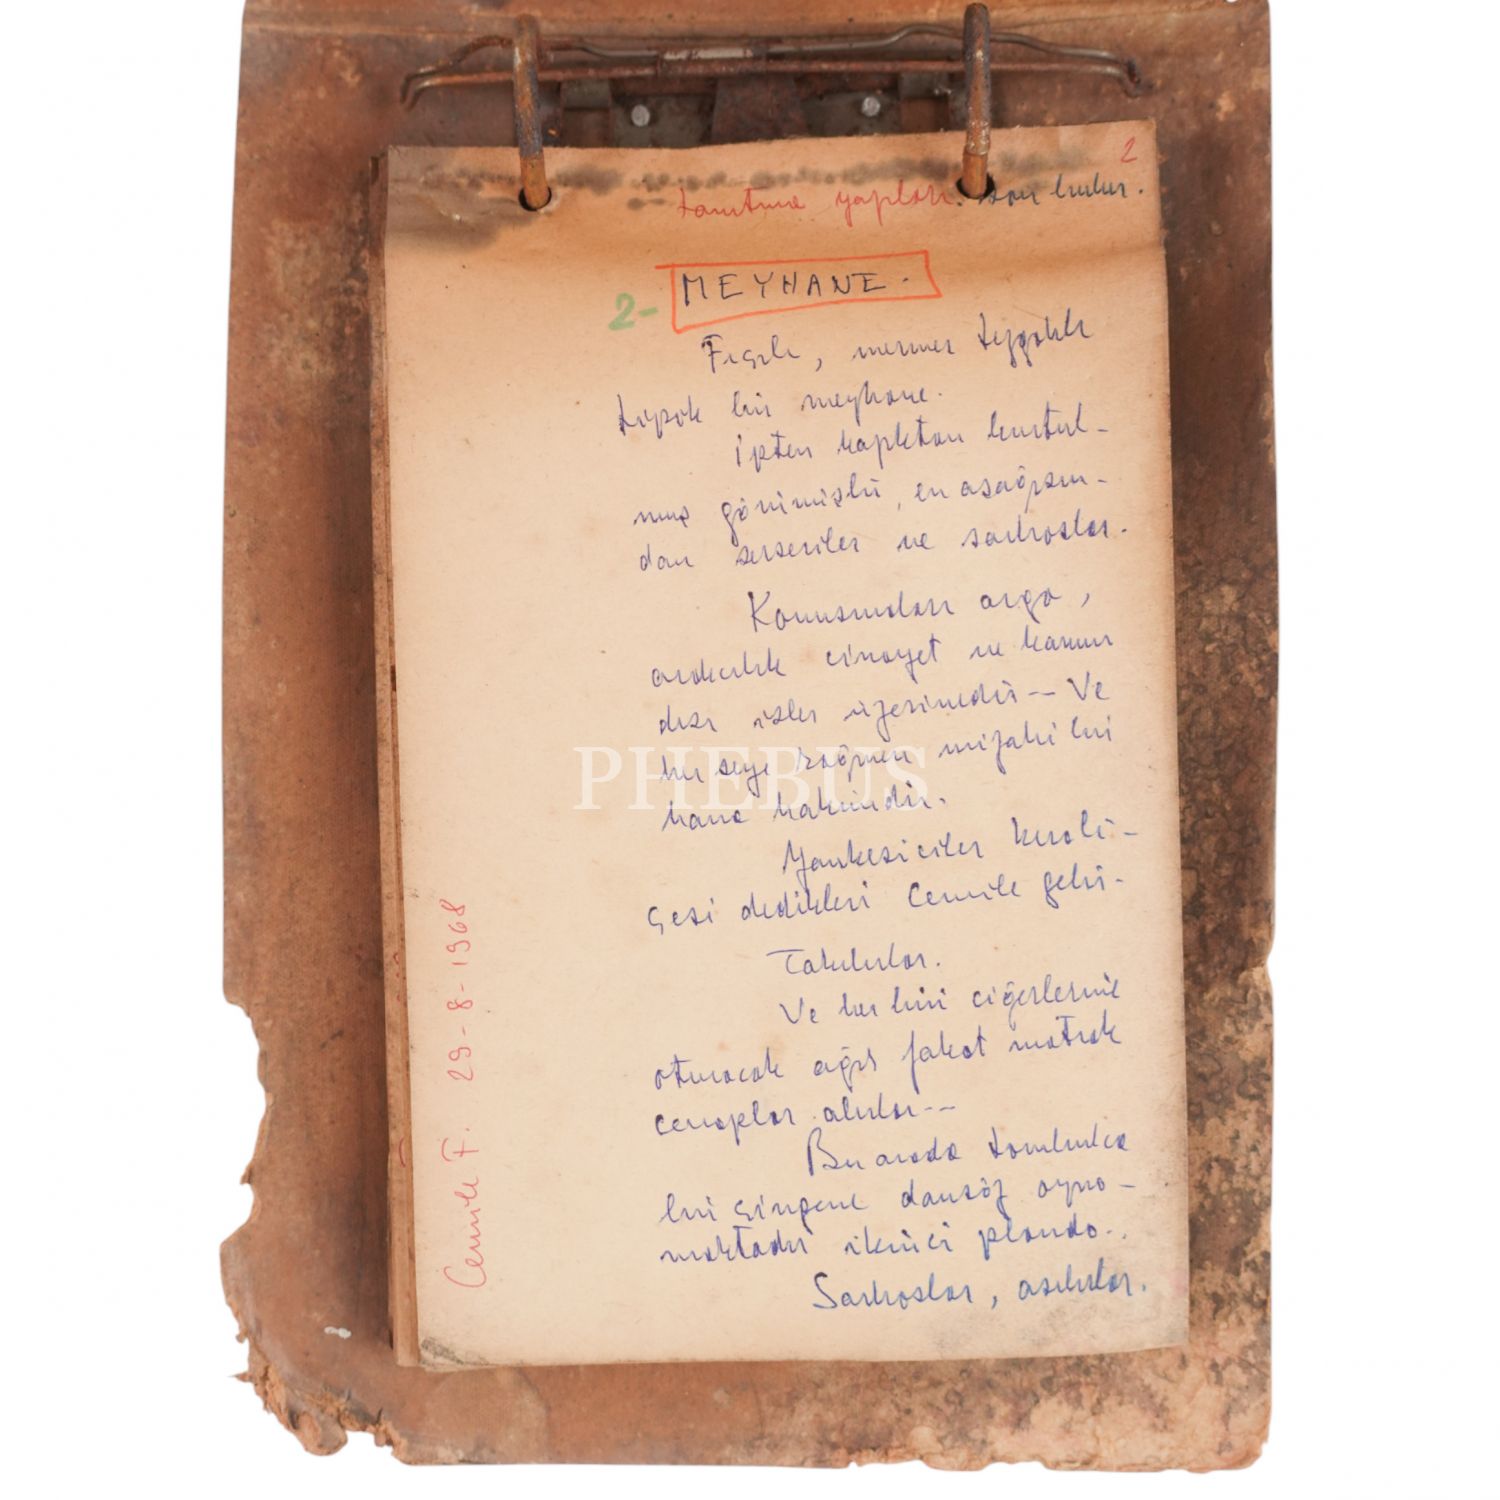 2
tanıtma yapılan. son bulur.
2- MEYHANE.
Fıçılı, mermer tezgahlı
tipik bir meyhane.
İpten kazıktan kurtul-
muş görünüşlü, en aşağısın-
dan serseriler ve sarhoşlar.
Konuşmaları argo,
ardarlık cinayet ve kanun
dışı işler üzerinedir-- Ve
her şeye rağmen mizahi bir
hava hakimdir.
Yankesiciler kırali-
çesi dedikleri Cemile gelir.
Takılırlar.
Ve her biri ciğerlerine
oturacak ağır fakat matrak
cevaplar alırlar--
Bu arada tombulca
bir çingene dansöz oyna-
maktadır ikinci planda..
Sarhoşlar, asılırlar.
Cemile F. 29-8-1968
PHEBUS